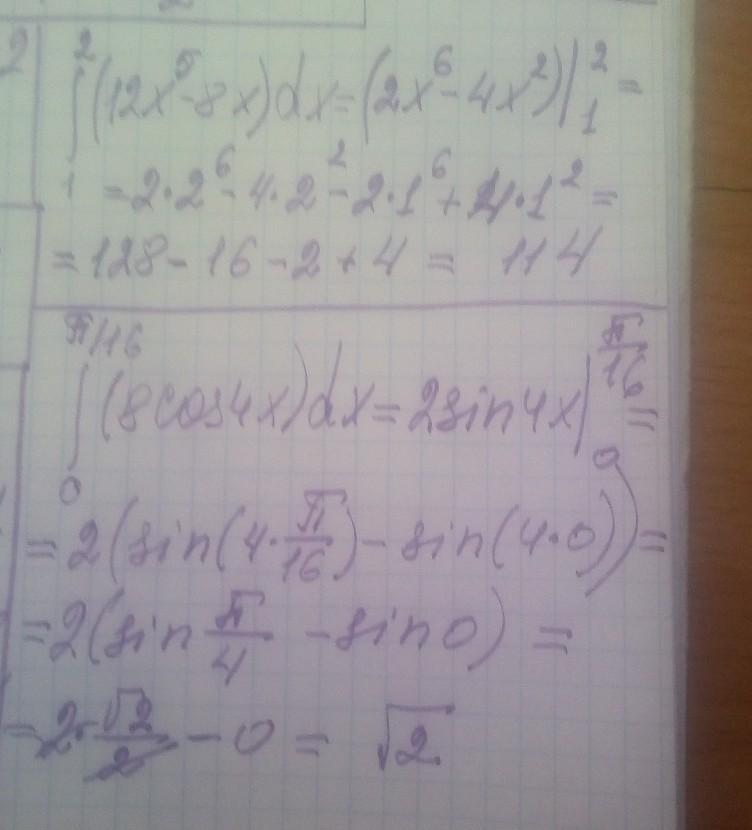 2
∫₁² (12x⁵ - 8x)dx = (2x⁶ - 4x²)|₁² =
= 2·2⁶ - 4·2² - 2·1⁶ + 4·1² =
= 128 - 16 - 2 + 4 = 114
∫₀^(π/16) (8cos4x)dx = 2sin4x|₀^(π/16) =
= 2(sin(4·π/16) - sin(4·0)) =
= 2(sin π/4 - sin0) =
= 2·√2/2 - 0 = √2